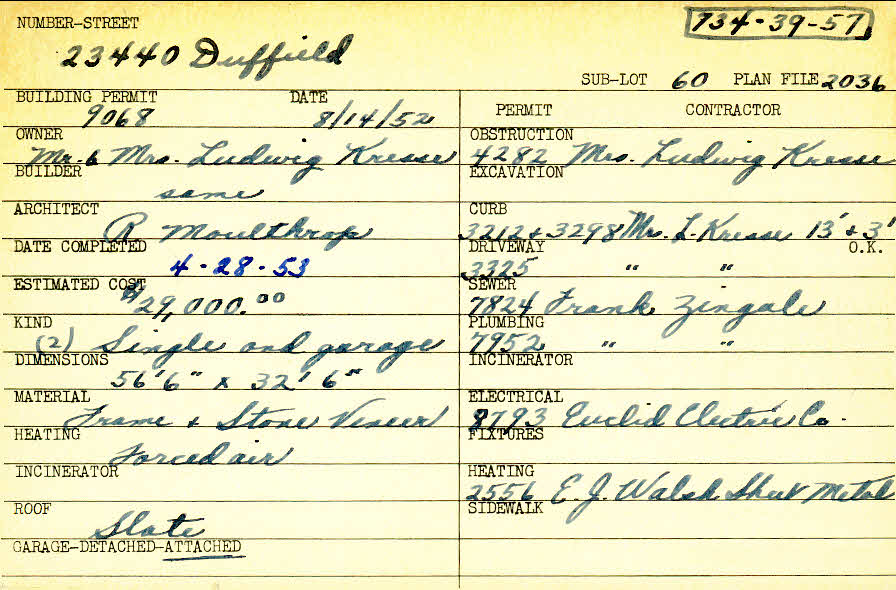 734-39-57
NUMBER-STREET
23440 Duffield
SUB-LOT 60 PLAN FILE 2036
BUILDING PERMIT DATE
9068 8/14/52
OWNER
Mr. & Mrs. Ludwig Kresse
BUILDER
same
ARCHITECT
R Moulthrop
DATE COMPLETED
4-28-53
ESTIMATED COST
$29,000.00
KIND
(2) Single and garage
DIMENSIONS
56'6" x 32'6"
MATERIAL
Frame & Stone Veneer
HEATING
Forced air
INCINERATOR
ROOF
Slate
GARAGE-DETACHED-ATTACHED
PERMIT CONTRACTOR
OBSTRUCTION
4282 Mrs. Ludwig Kresse
EXCAVATION
CURB
3212 & 3298 Mrs. L. Kresse 13' & 3'
DRIVEWAY O.K.
3325 " "
SEWER
7824 Frank Zingale
PLUMBING
7952 " "
INCINERATOR
ELECTRICAL
8793 Euclid Electric Co.
FIXTURES
HEATING
2556 E. J. Walsh Sheet Metal
SIDEWALK